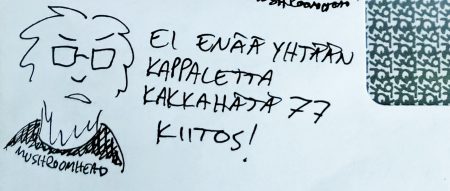 EI ENÄÄ YHTÄÄN
KAPPALETTA
KAKKAHÄTÄ 77
KIITOS!
MUSHROOMHEAD